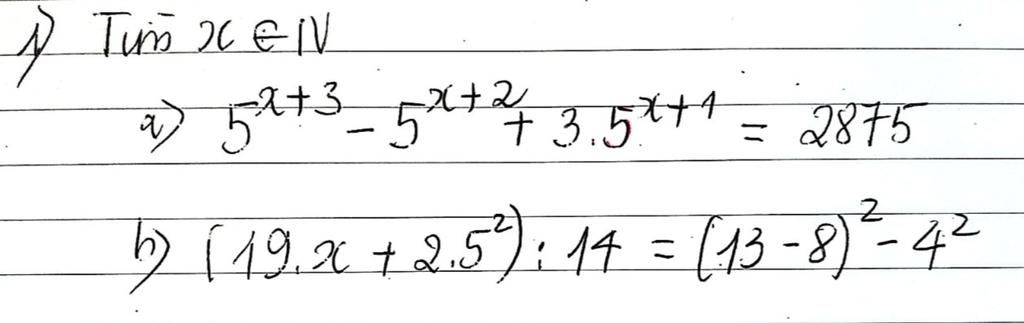 1) Tìm x ∈ N
a) 5^{x+3} - 5^{x+2} + 3.5^{x+1} = 2875
b) (19.x + 2.5^2) : 14 = (13 - 8)^2 - 4^2